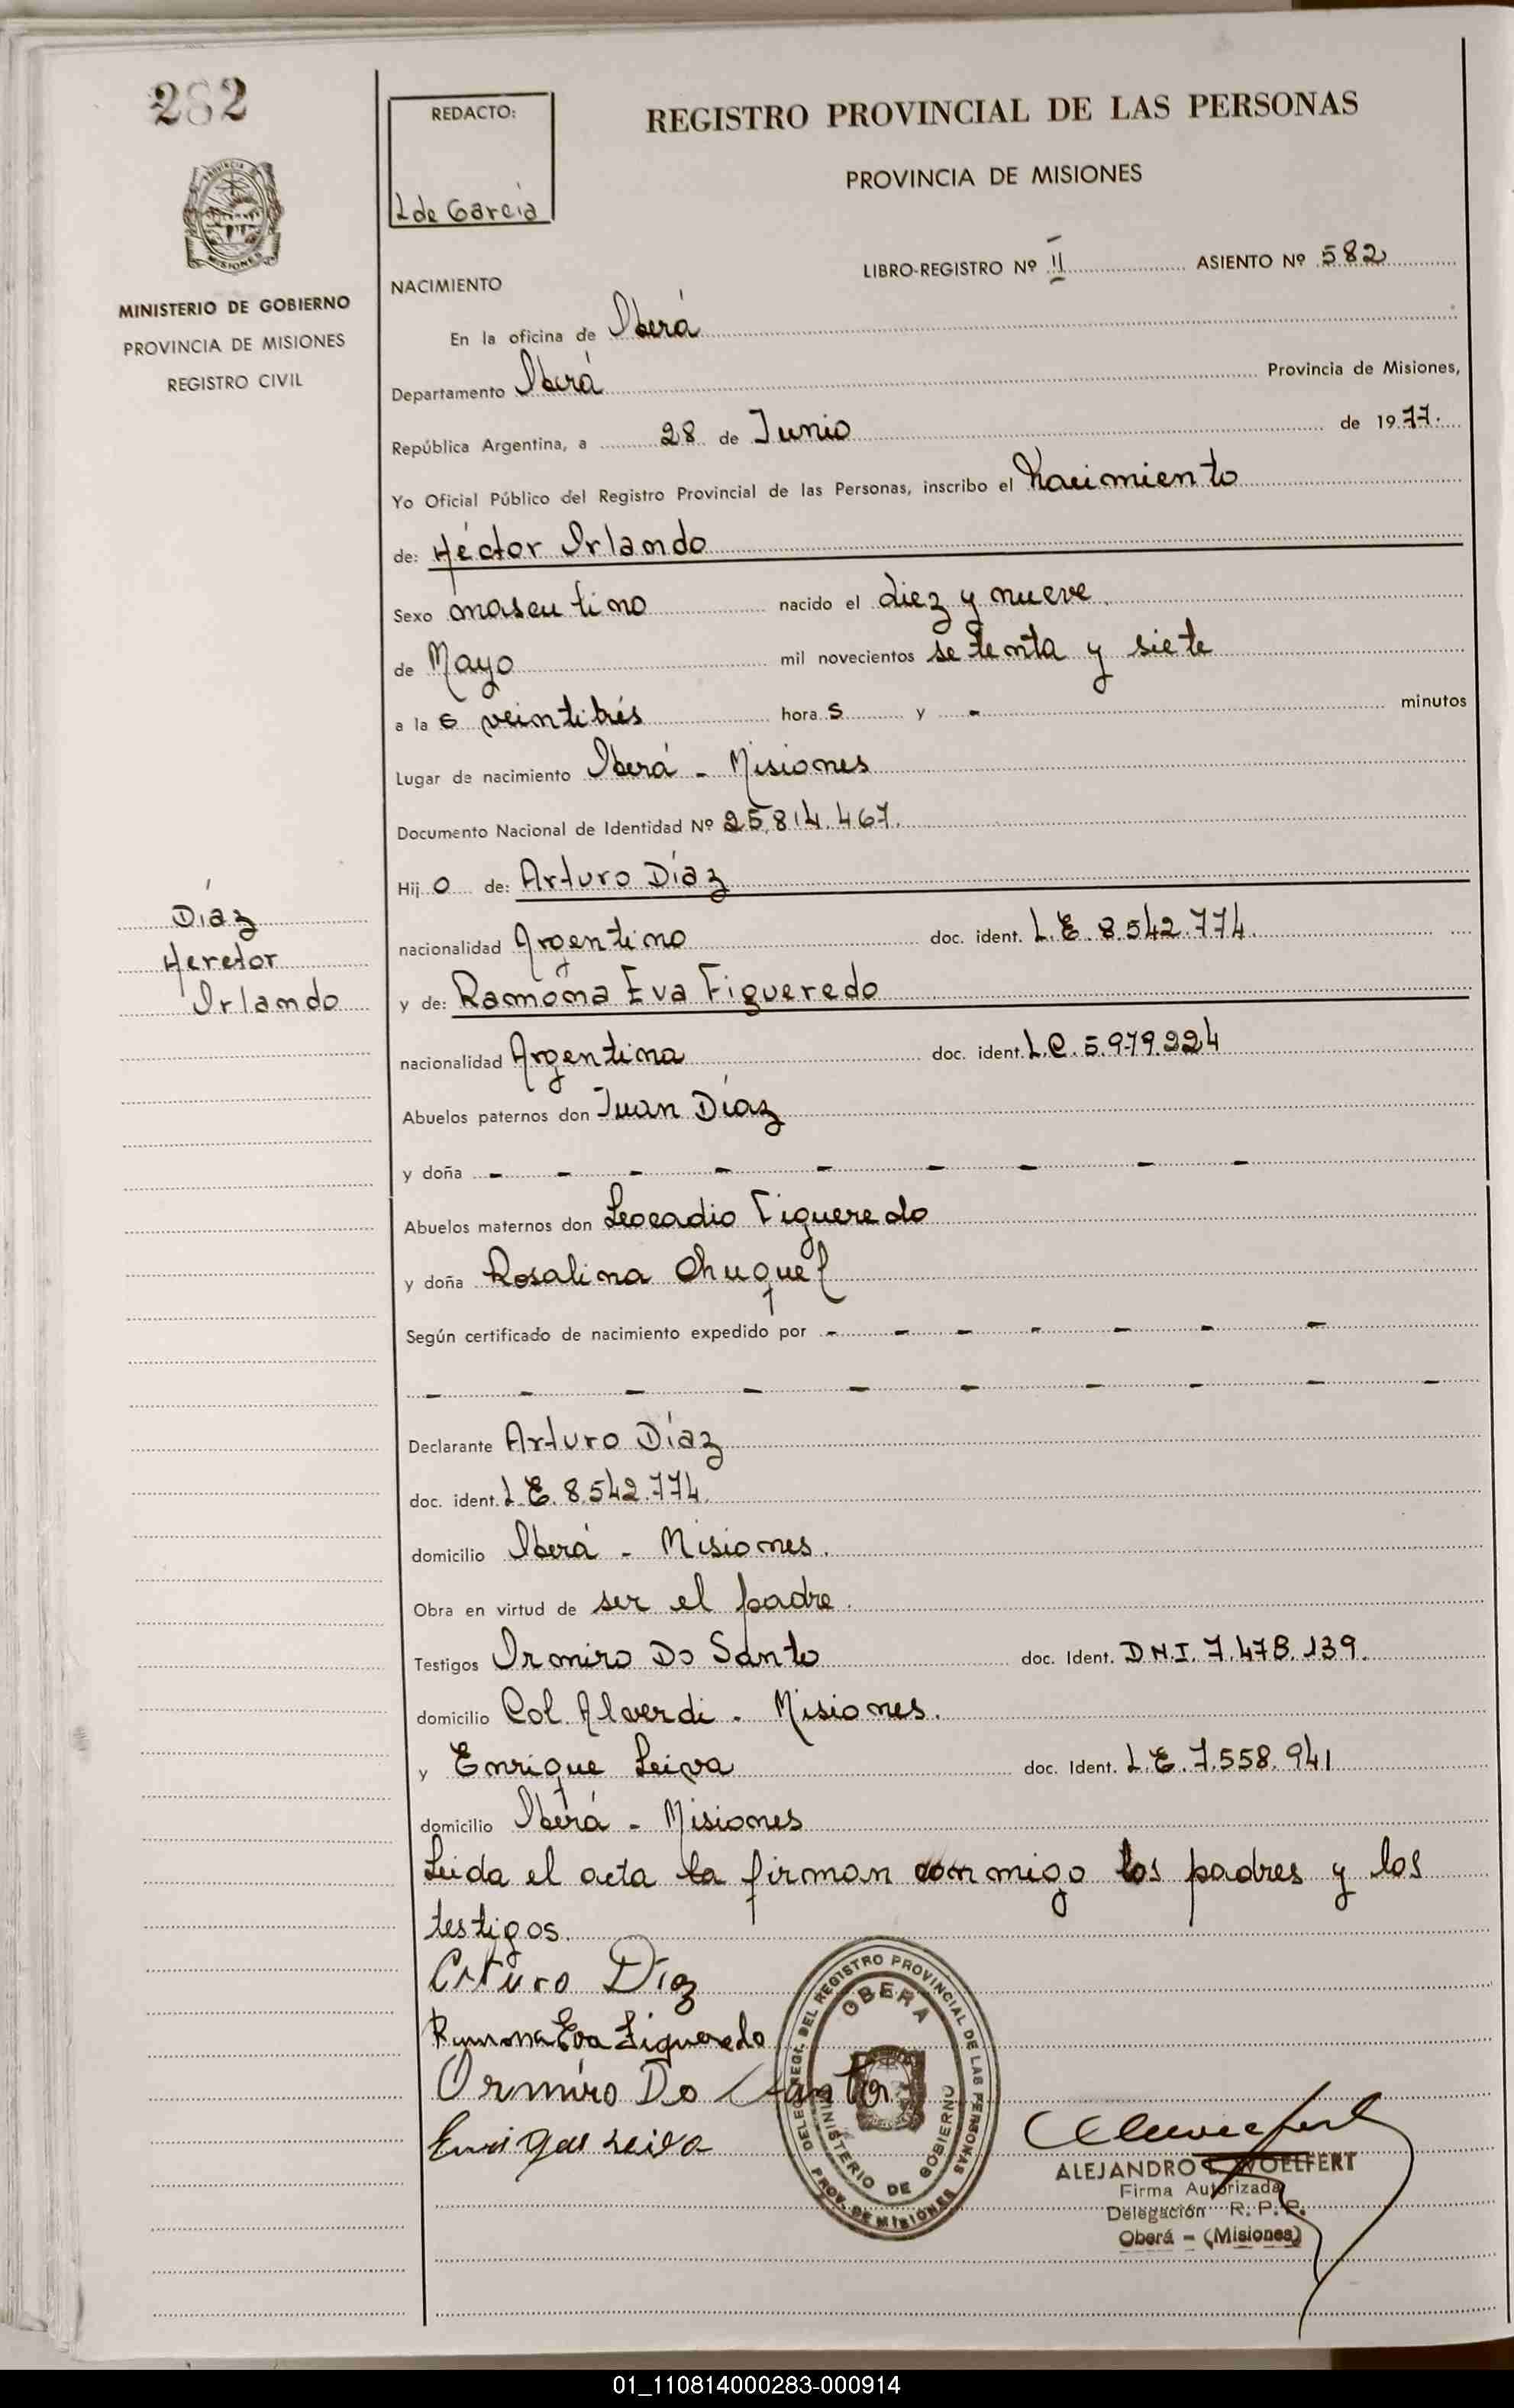 282
REDACTO:
L de García
REGISTRO PROVINCIAL DE LAS PERSONAS
PROVINCIA DE MISIONES
PROVINCIA
MISIONES
MINISTERIO DE GOBIERNO
PROVINCIA DE MISIONES
REGISTRO CIVIL
LIBRO-REGISTRO Nº II ASIENTO Nº 582
NACIMIENTO
En la oficina de Oberá
Departamento Oberá Provincia de Misiones,
República Argentina, a 28 de Junio de 1977.
Yo Oficial Público del Registro Provincial de las Personas, inscribo el Nacimiento
de: Héctor Orlando
Sexo masculino nacido el diez y nueve
de Mayo mil novecientos setenta y siete
a la s veintitrés hora s y - minutos
Lugar de nacimiento Oberá - Misiones
Documento Nacional de Identidad Nº 25.814.467.
Hij o de: Arturo Díaz
Díaz
Heretor
Orlando
nacionalidad Argentino doc. ident. L.E. 8.542.774.
y de: Ramona Eva Figueredo
nacionalidad Argentina doc. ident. L.C. 5.979.224
Abuelos paternos don Juan Díaz
y doña - - - - - - - - -
Abuelos maternos don Leocadio Figueredo
y doña Rosalina Chuquel
Según certificado de nacimiento expedido por - - - - - - -
- - - - - - - - - -
Declarante Arturo Díaz
doc. ident. L.E. 8.542.774.
domicilio Oberá - Misiones.
Obra en virtud de ser el padre.
Testigos Ormiro Do Santo doc. Ident. D.N.I. 7.478.139.
domicilio Col. Alverdi - Misiones.
y Enrique Leiva doc. Ident. L.E. 7.558.941
domicilio Oberá - Misiones
Leida el acta la firman conmigo los padres y los
testigos.
Arturo Díaz
Ramona Eva Figueredo
Ormiro Do Santo
Enrique Leiva
DELEG. REGT. DEL REGISTRO PROVINCIAL DE LAS PERSONAS
OBERA
MINISTERIO DE GOBIERNO
PROV. DE MISIONES
ALEJANDRO WOELFERT
Firma Autorizada
Delegación R. P. P.
Oberá - (Misiones)
01_110814000283-000914